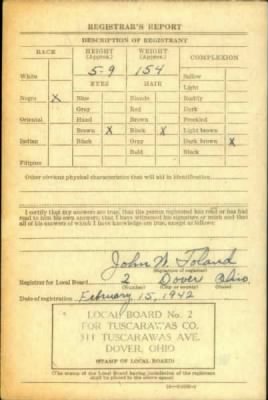 REGISTRAR'S REPORT
DESCRIPTION OF REGISTRANT
RACE HEIGHT (Approx.) WEIGHT (Approx.) COMPLEXION
5-9 154
White Sallow
EYES HAIR Light
Negro X Blue Blonde Ruddy
Gray Red Dark
Oriental Hazel Brown Freckled
Brown X Black X Light brown
Indian Black Gray Dark brown X
Bald Black
Filipino
Other obvious physical characteristics that will aid in identification
I certify that my answers are true; that the person registered has read or has had
read to him his own answers; that I have witnessed his signature or mark and that
all of his answers of which I have knowledge are true, except as follows:
John W. Toland
(Signature of registrar)
Registrar for Local Board 2 Dover Ohio
(Number) (City or county) (State)
Date of registration February 15, 1942
LOCAL BOARD No. 2
FOR TUSCARAWAS CO.
TUSCARAWAS AVE.
DOVER, OHIO
(STAMP OF LOCAL BOARD)
(The stamp of the Local Board having jurisdiction of the registrant
shall be placed in the above space)